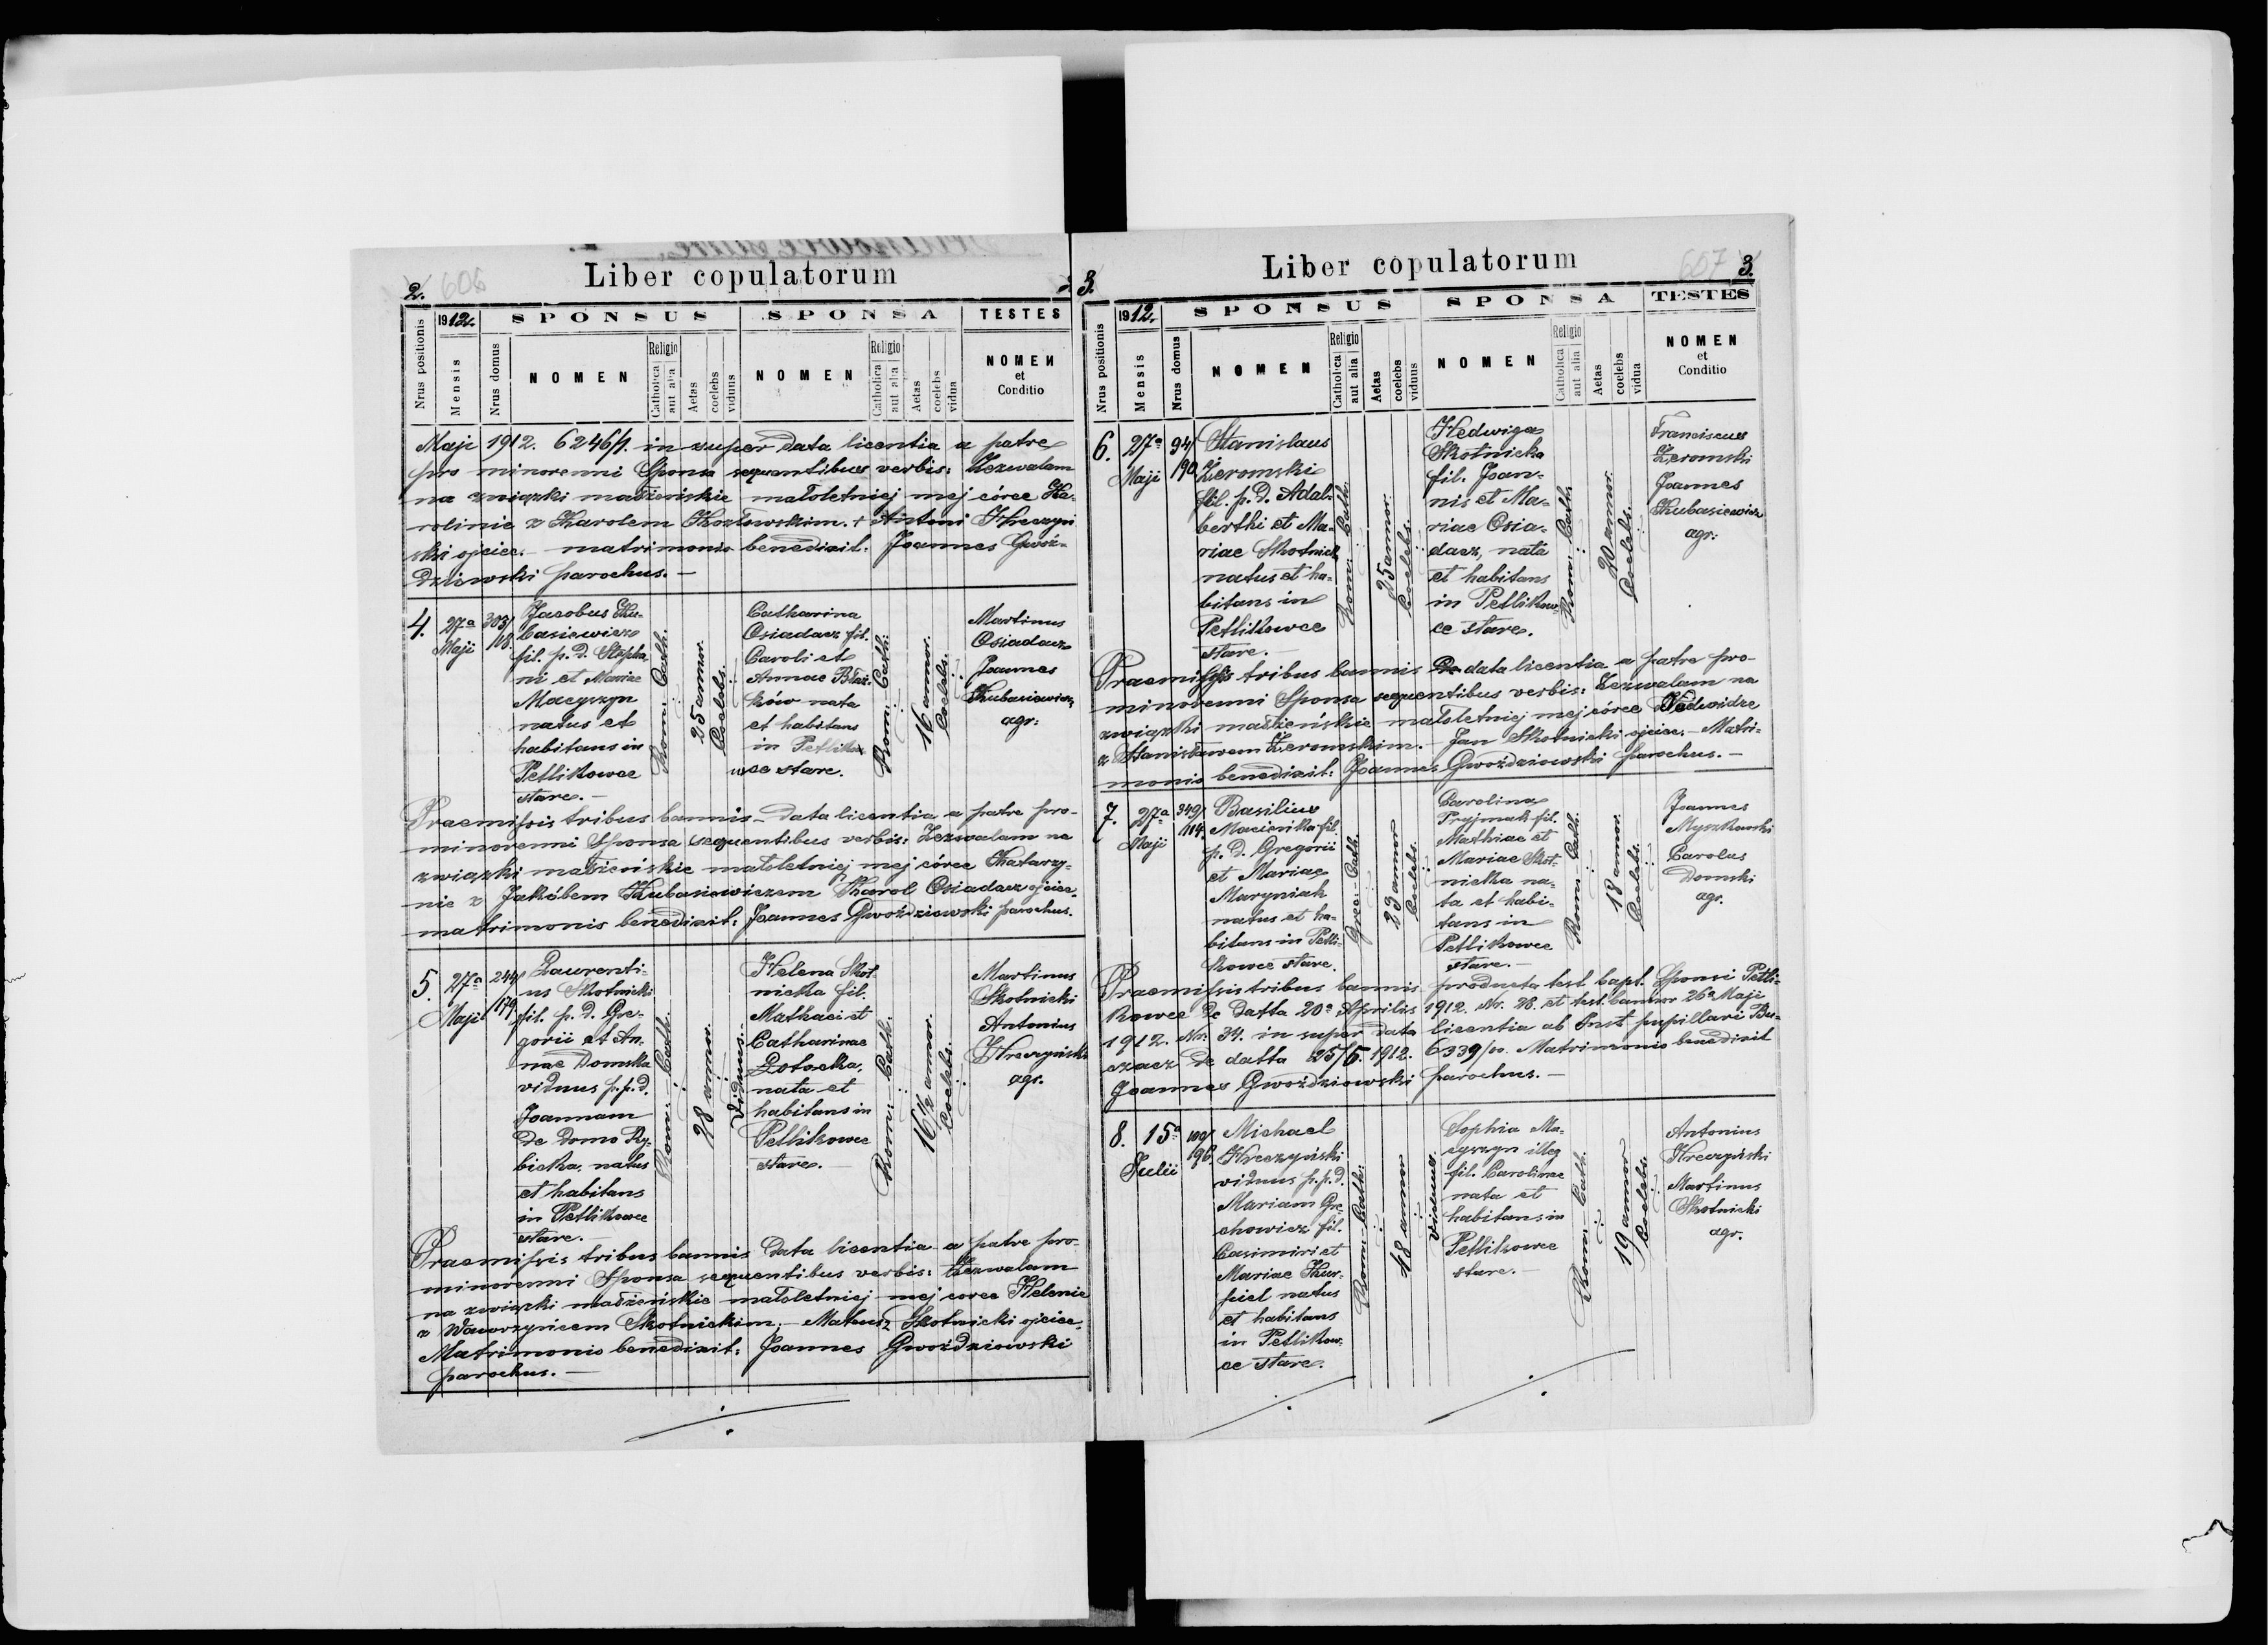 Liber copulatorum
2. 606
1912.
SPONSUS
SPONSA
TESTES
Nrus positionis
Mensis
Nrus domus
NOMEN
Religio
Catholica
aut alia
Aetas
coelebs
viduus
NOMEN
Religio
Catholica
aut alia
Aetas
coelebs
vidua
NOMEN
et
Conditio
Maji 1912. 6246/1. in super data licentia a patre
pro minorenni Sponsa sequentibus verbis: Zezwalam
na związki małżeńskie małoletniej mej córce Ka-
rolinie z Karolem Kozłowskim. + Antoni Hreczyń
ski ojciec. — matrimonio benedixit: Joannes Gwoź-
dziowski parochus. —
4.
27a
Maji
303/
18.
Jacobus Ku-
basiewicz
fil. p. d. Stepha
ni et Mariae
Macyszyn
natus et
habitans in
Petlikowce
stare. —
Rom: Cath:
25 annor.
Coelebs.
Catharina
Osiadacz fil.
Caroli et
Annae Błaż-
ków nata
et habitans
in Petliko
wce stare.
Rom: Cath:
16 annor.
Coelebs.
Martinus
Osiadacz
Joannes
Kubasiewicz
agr:
Praemissis tribus bannis — data licentia a patre pro
minorenni Sponsa sequentibus verbis: Zezwalam na
związki małżeńskie małoletniej mej córce Katarzy-
nie z Jakóbem Kubasiewiczem Karol Osiadacz ojciec.
matrimonio benedixit: Joannes Gwoździowski parochus.
5.
27a
Maji
244/
179.
Laurenti-
us Skotnicki
fil. p. d. Gre-
gorii et An-
nae Domska
viduus p. p. d.
Joannam
de domo Ry-
bicka, natus
et habitans
in Petlikowce
stare.
Rom: Cath.
28 annor.
Viduus.
Helena Skot
nicka fil.
Mathaei et
Catharinae
Potocka,
nata et
habitans in
Petlikowce
stare. —
Rom: Cath.
16 1/2 annor.
Coelebs.
Martinus
Skotnicki
Antonius
Hreczyński
agr.
Praemissis tribus bannis data licentia a patre pro
minorenni Sponsa sequentibus verbis: Zezwalam
na związki małżeńskie małoletniej mej corce Helenie
z Wawrzyńcem Skotnickim. — Mateusz Skotnicki ojciec.
Matrimonio benedixit: Joannes Gwoździowski
parochus. —
Liber copulatorum
3. 607 3.
1912.
SPONSUS
SPONSA
TESTES
Nrus positionis
Mensis
Nrus domus
NOMEN
Religio
Catholica
aut alia
Aetas
coelebs
viduus
NOMEN
Religio
Catholica
aut alia
Aetas
coelebs
vidua
NOMEN
et
Conditio
6.
27a
Maji
94/
190
Stanislaus
Żeromski
fil. p. d. Adal-
berthi et Ma-
riae Skotnick
natus et ha-
bitans in
Petlikowce
stare. —
Rom: Cath:
25 annor.
Coelebs.
Hedwiga
Skotnicka
fil. Joan-
nis et Ma-
riae Osia-
dacz, nata
et habitans
in Petlikow
ce stare.
Rom: Cath:
20 annor.
Coelebs.
Franciscus
Żeromski
Joannes
Kubasiewicz
agr:
Praemissis tribus bannis data licentia a patre pro-
minorenni Sponsa sequentibus verbis: Zezwalam na
związki małżeńskie małoletniej mej córce Jadwidze
z Stanisławem Żeromskim. — Jan Skotnicki ojciec. — Matri-
monio benedixit: Joannes Gwoździowski parochus. —
7.
27a
Maji
349/
114.
Basilius
Macieńka fil.
p. d. Gregorii
et Mariae
Maryniak
natus et ha-
bitans in Petli-
kowce stare.
Grec: Cath.
23 annor
Coelebs.
Carolina
Pryjmak fil.
Mathiae et
Mariae Skot-
nicka na-
ta et habi-
tans in
Petlikowce
stare. —
Rom: Cath.
18 annor.
Coelebs.
Joannes
Myszkowski
Carolus
Domski
agr.
Praemissis tribus bannis producta test. bapt. Sponsi Petli-
kowce de datta 20a Aprilis 1912. Nr. 28. et test. bannor 26a Maji
1912. Nr. 34. in super data licentia ab Inst. pupillari Bu-
czacz de datta 25/5. 1912. 6339/00. Matrimonio benedixit
Joannes Gwoździowski parochus. —
8.
15a
Julii
109/
196.
Michael
Hreczyński
viduus p. p. d.
Mariam Gre
chowicz fil.
Casimiri et
Mariae Kur-
piel natus
et habitans
in Petlikow-
ce stare.
Rom: Cath:
48 annor
viduus.
Sophia Ma-
cyszyn illeg
fil. Carolinae
nata et
habitans in
Petlikowce
stare. —
Rom: Cath.
19 annor
Coelebs.
Antonius
Hreczyński
Martinus
Skotnicki
agr.